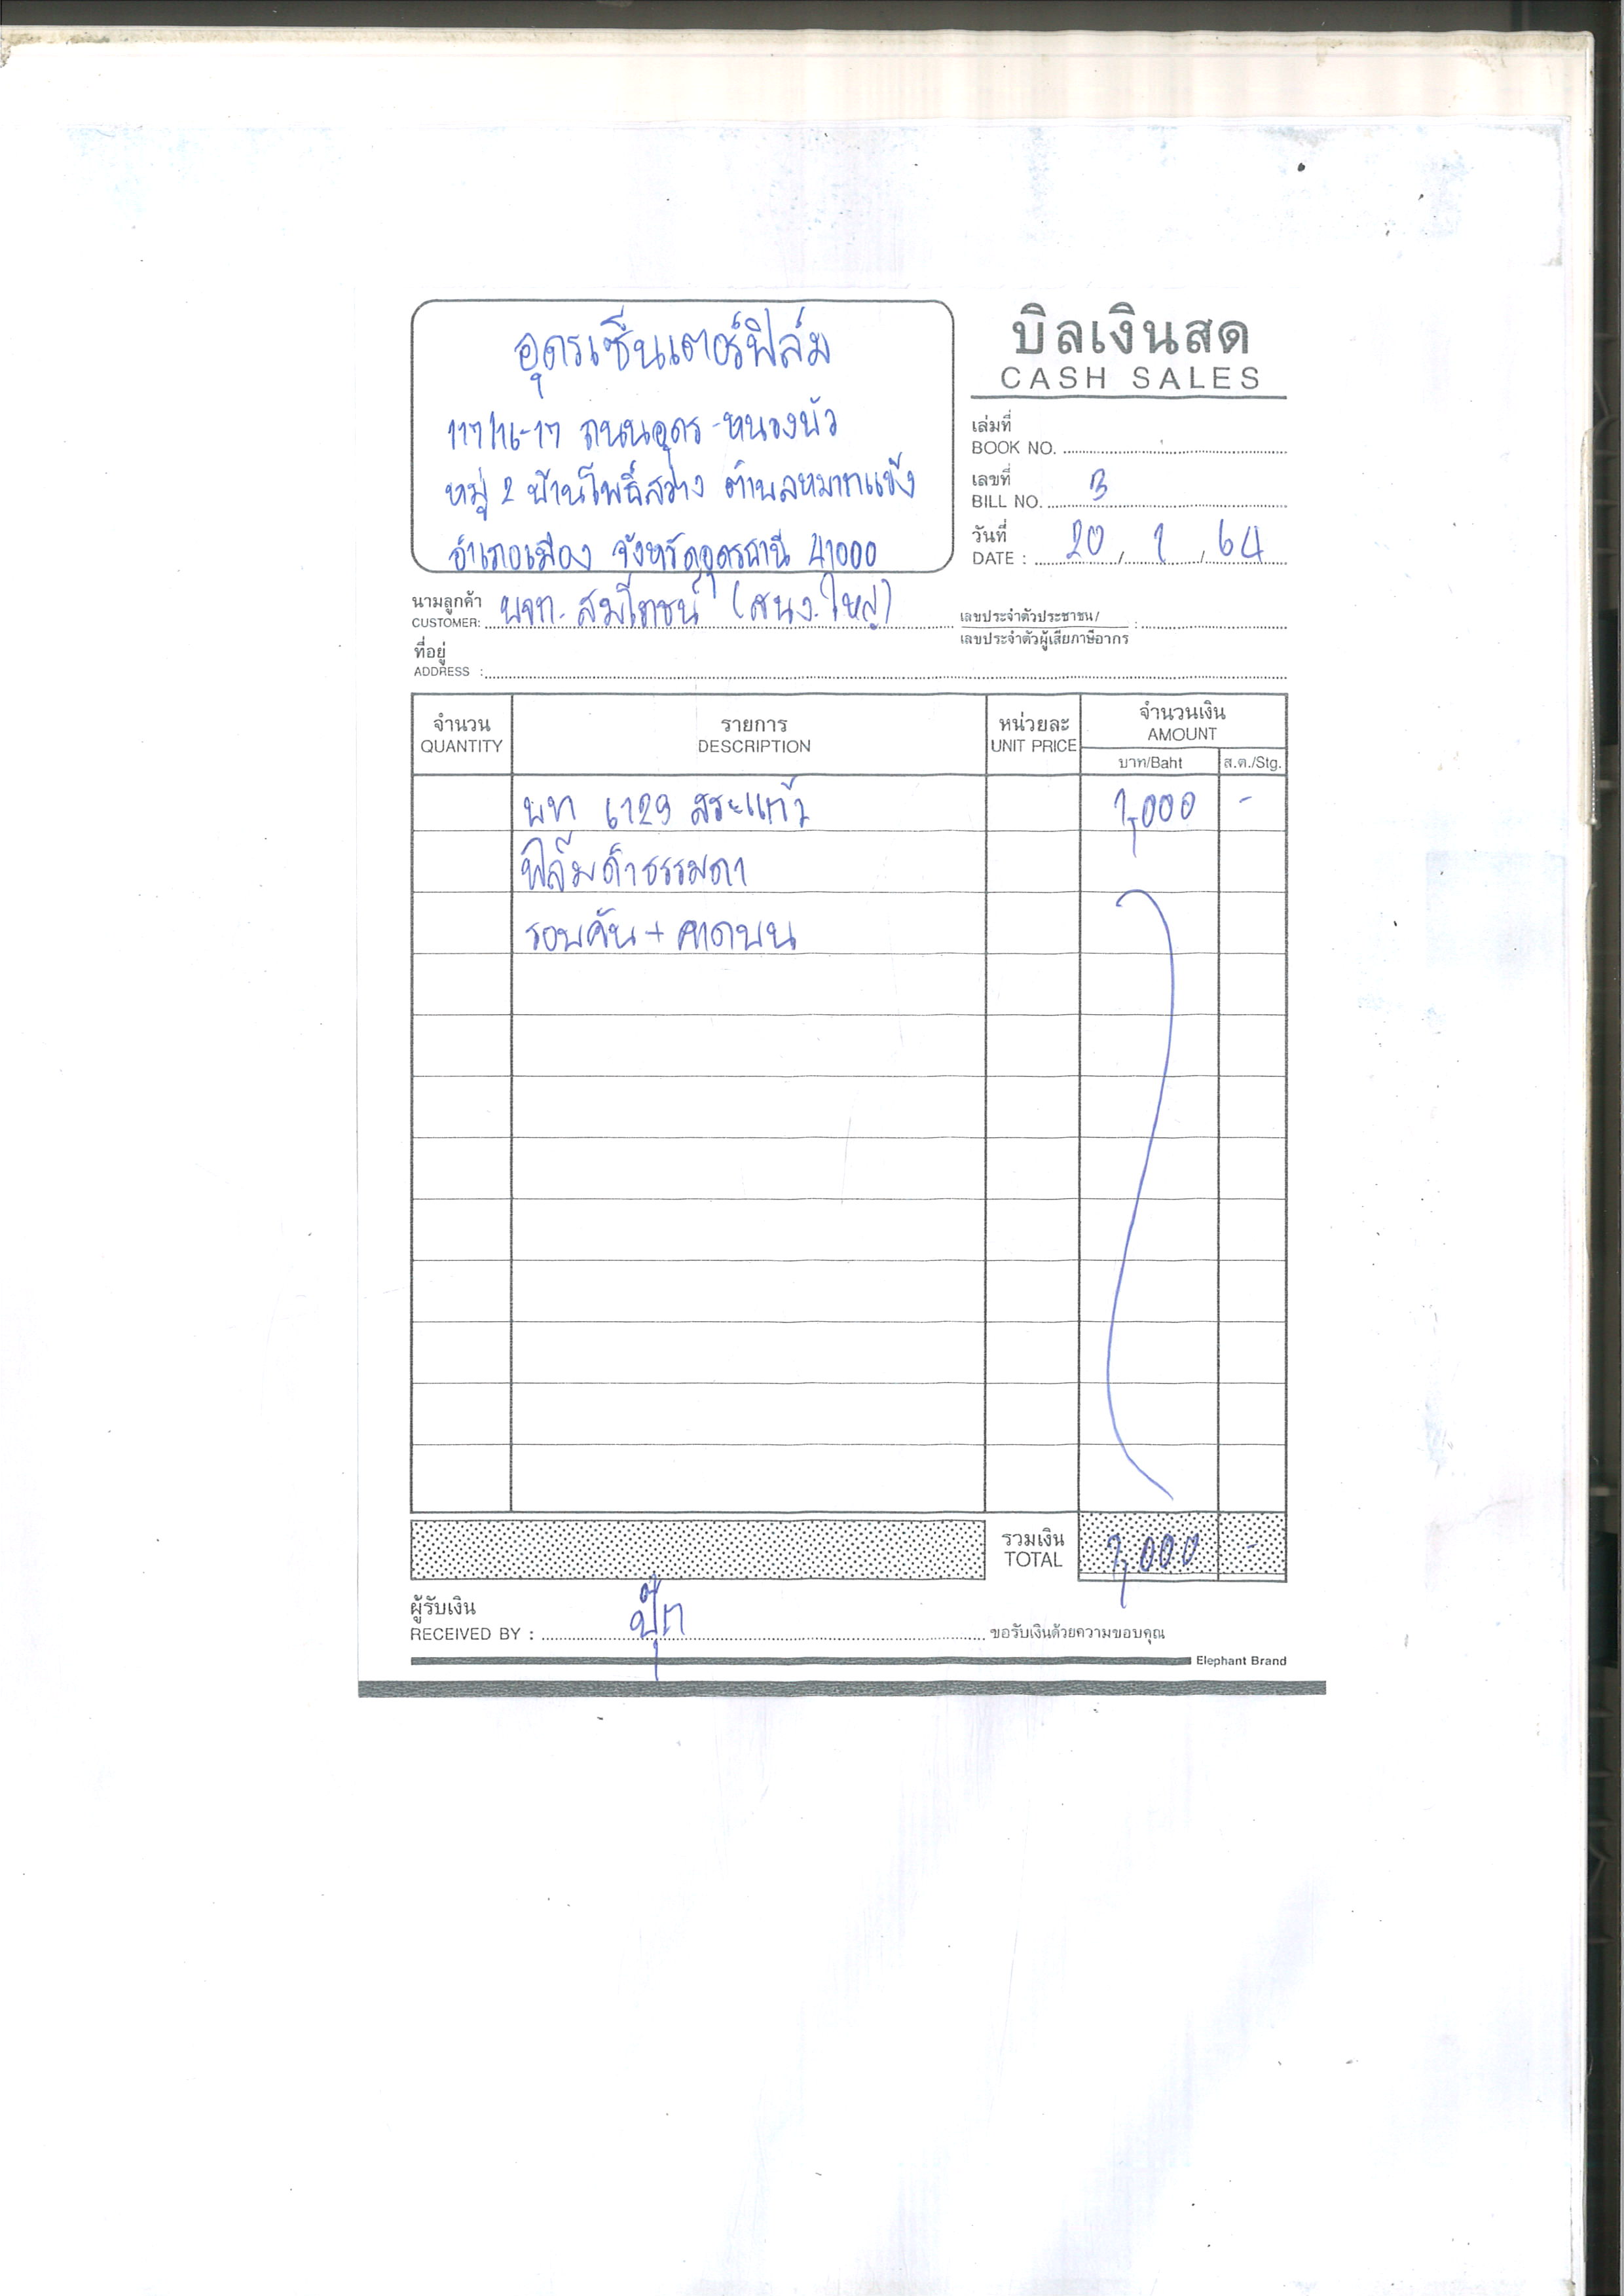 อุดรเซ็นเตอร์ฟิล์ม
117/16-17 ถนนอุดร-หนองบัว
หมู่ 2 บ้านโพธิ์สว่าง ตำบลหมากแข้ง
อำเภอเมือง จังหวัดอุดรธานี 41000
บิลเงินสด
CASH SALES
เล่มที่
BOOK NO.
เลขที่
BILL NO. 3
วันที่
DATE : 20 / 1 / 64
นามลูกค้า
CUSTOMER: บจก. สมโภชน์ (สนง.ใหญ่)
เลขประจำตัวประชาชน/
เลขประจำตัวผู้เสียภาษีอากร :
ที่อยู่
ADDRESS :
จำนวน รายการ หน่วยละ จำนวนเงิน
QUANTITY DESCRIPTION UNIT PRICE AMOUNT
บาท/Baht ส.ต./Stg.
บท 6129 สระแก้ว 1,000 -
ฟิล์มดำธรรมดา
รอบคัน + คาดบน
รวมเงิน
TOTAL 1,000 -
ผู้รับเงิน
RECEIVED BY : ปุ๊ก ขอรับเงินด้วยความขอบคุณ
Elephant Brand